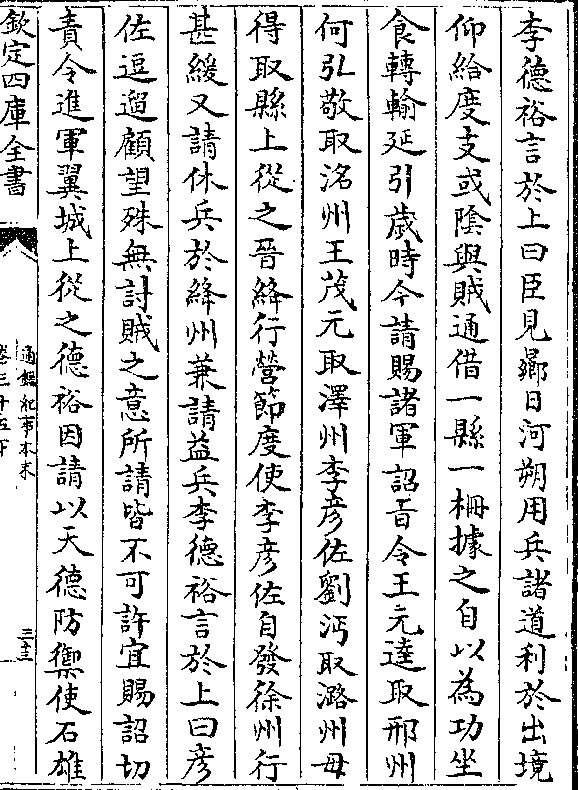 李德裕言於上曰臣見曏日河朔用兵諸道利於出境
仰給度支或隂與賊通借一縣一柵據之自以為功坐
食轉輸延引歲時今請賜諸軍詔㫖令王元逵取邢州
何弘敬取洺州王茂元取澤州李彦佐劉沔取潞州毋
得取縣上從之晉絳行營節度使李彦佐自發徐州行
甚緩又請休兵於絳州兼請益兵李德裕言於上曰彦
佐逗遛顧望殊無討賊之意所請皆不可許宜賜詔切
責令進軍翼城上從之德裕因請以天德防禦使石雄
欽定四庫全書
通鑑紀事本末
卷三十五下
三十三